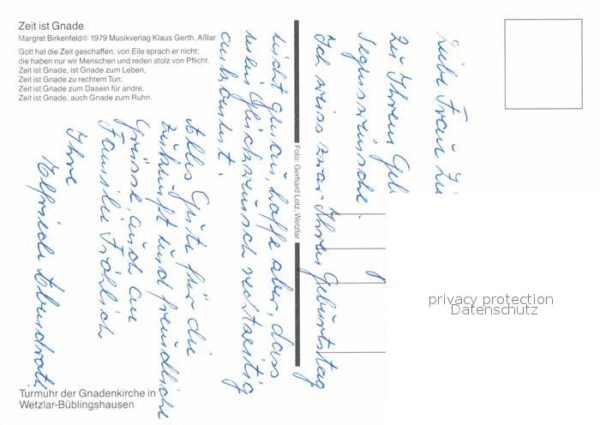 Zeit ist Gnade
Margret Birkenfeld © 1979 Musikverlag Klaus Gerth, Aßlar
Gott hat die Zeit geschaffen, von Eile sprach er nicht;
die haben nur wir Menschen und reden stolz von Pflicht.
Zeit ist Gnade; ist Gnade zum Leben,
Zeit ist Gnade zu rechtem Tun;
Zeit ist Gnade zum Dasein für andre,
Zeit ist Gnade, auch Gnade zum Ruhn.
Foto: Gerhard Lotz, Wetzlar
Turmuhr der Gnadenkirche in
Wetzlar-Büblingshausen
Liebe Frau
Zu Ihrem Geb
Segenswünsche
Ich weiss zwar Ihren Geburtstag
nicht genau, hoffe aber, dass
mein Glückwunsch rechtzeitig
ankommt.
Alles Gute für die
Zukunft und freundliche
Grüsse, auch an
Familie Fröhlich
Ihre
privacy protection
Datenschutz